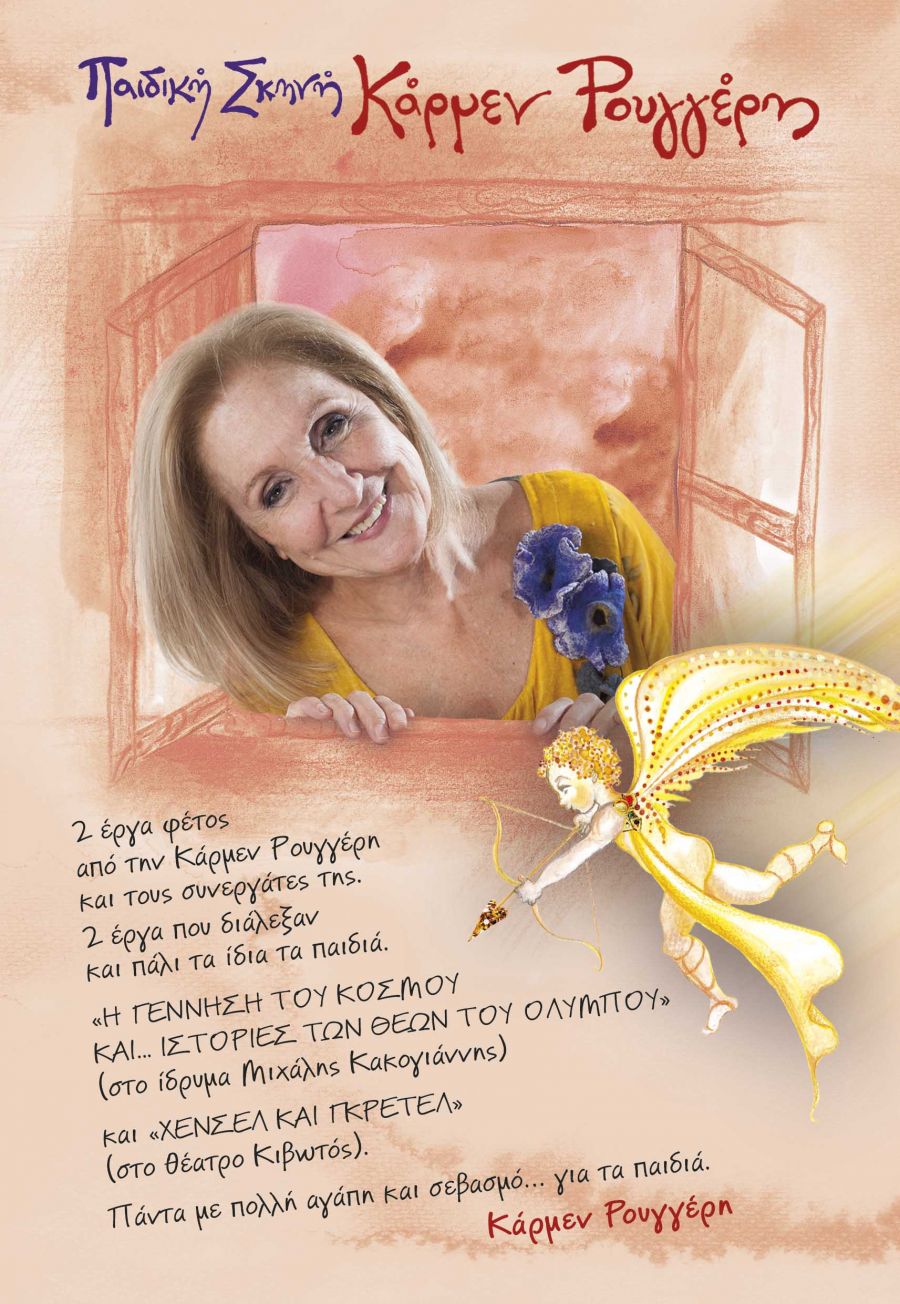 Παιδική Σκηνή Κάρμεν Ρουγγέρη
2 έργα φέτος
από την Κάρμεν Ρουγγέρη
και τους συνεργάτες της.
2 έργα που διάλεξαν
και πάλι τα ίδια τα παιδιά.
«Η ΓΕΝΝΗΣΗ ΤΟΥ ΚΟΣΜΟΥ
ΚΑΙ... ΙΣΤΟΡΙΕΣ ΤΩΝ ΘΕΩΝ ΤΟΥ ΟΛΥΜΠΟΥ»
(στο ίδρυμα Μιχάλης Κακογιάννης)
και «ΧΕΝΣΕΛ ΚΑΙ ΓΚΡΕΤΕΛ»
(στο θέατρο Κιβωτός).
Πάντα με πολλή αγάπη και σεβασμό... για τα παιδιά.
Κάρμεν Ρουγγέρη